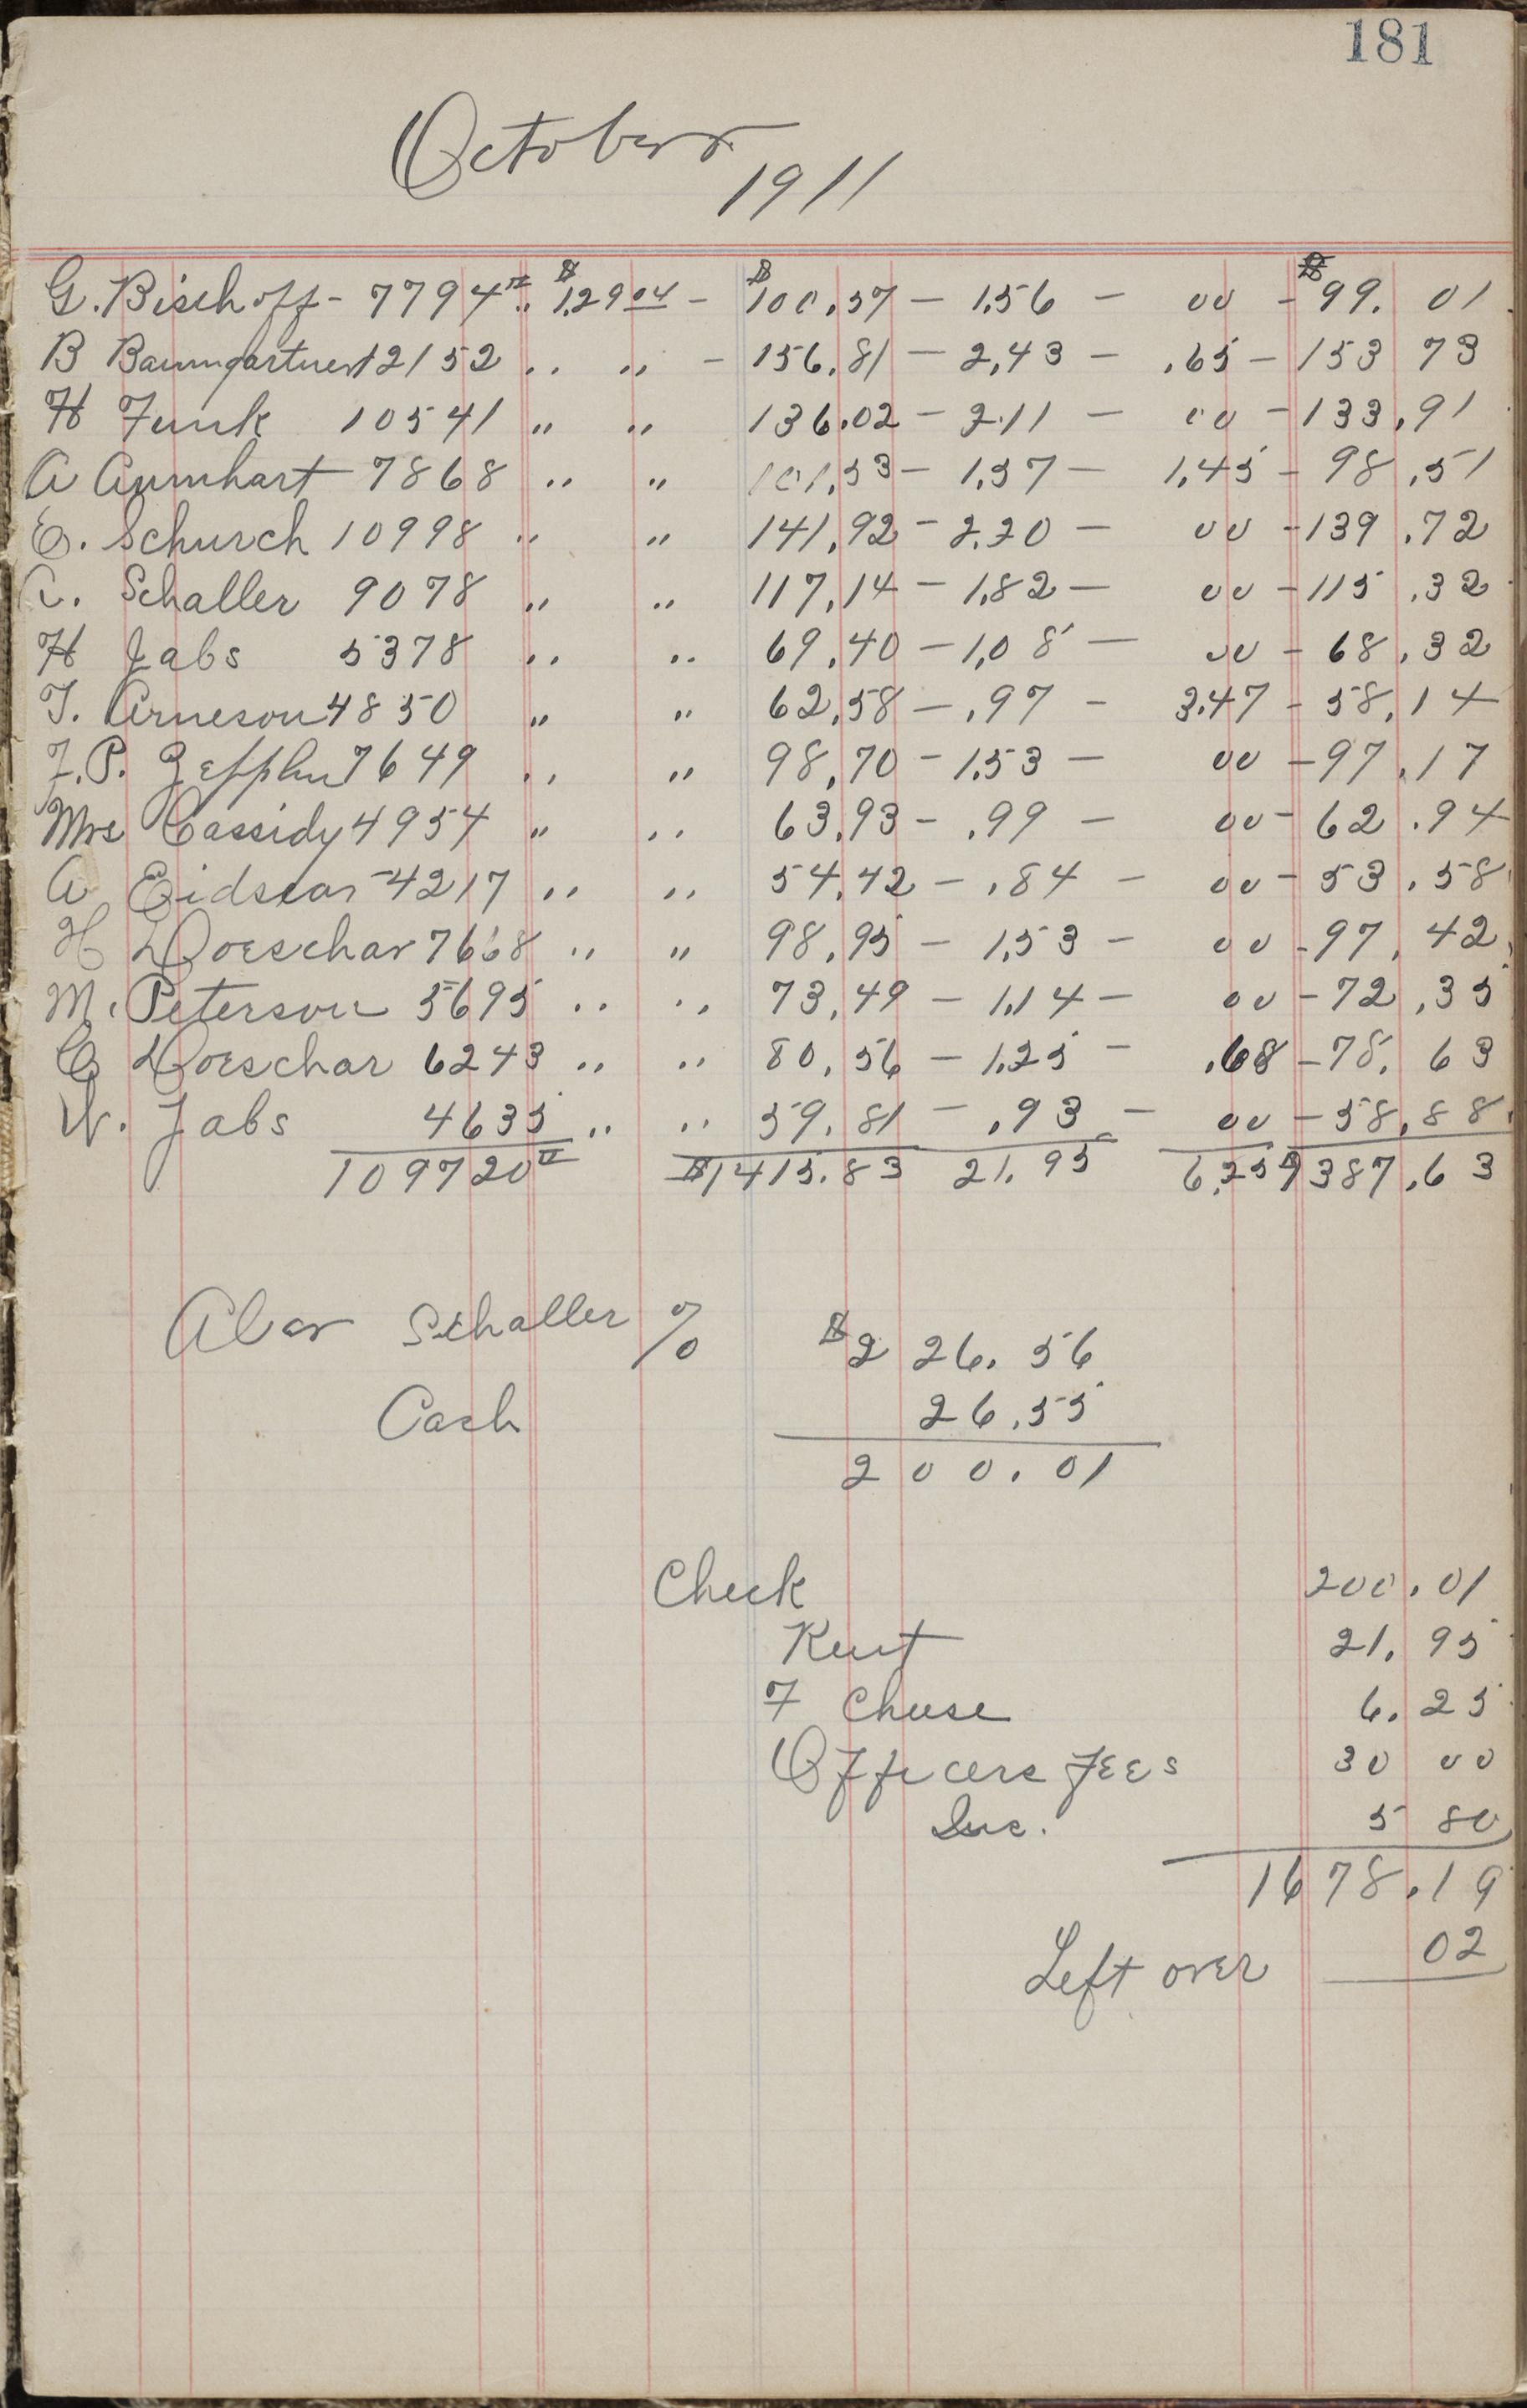 181
October
1911
G. Bischoff - 7794 # .. $1.29 04 - $100.57 - 1.56 - 00 - $99. 01
B Baumgartner 12152 .. .. - 156.81 - 2.43 - .65 - 153 73
H Funk 10541 " " 136.02 - 2.11 - 00 - 133.91
A Aumhart 7868 .. " 101.53 - 1.57 - 1.45 - 98.51
E. Schurch 10998 " " 141.92 - 2.20 - 00 - 139.72
A. Schaller 9078 " " 117.14 - 1.82 - 00 - 115.32
H Jabs 5378 .. .. 69.40 - 1.08 - 00 - 68.32
T. Arneson 4850 " " 62.58 - .97 - 3.47 - 58.14
F.P. Zepplin 7649 .. " 98.70 - 1.53 - 00 - 97.17
Mrs Cassidy 4954 " .. 63.93 - .99 - 00 - 62.94
A Eidscar 4217 .. .. 54.42 - .84 - 00 - 53.58
H Doeschar 7668 .. " 98.95 - 1.53 - 00 - 97.42
M. Peterson 5695 .. .. 73.49 - 1.14 - 00 - 72.35
C Doeschar 6243 .. .. 80.56 - 1.25 - .68 - 78.63
W. Jabs 4635 .. .. 59.81 - .93 - 00 - 58.88
109720 # $1415.83 21.95 6.25 $1387.63
Alex Schaller % $226.56
Cash 26.55
200.01
Check 200.01
Rent 21.95
F Cheese 6.25
Officers Fees 30 00
Ins. 5 80
1678.19
Left over 02